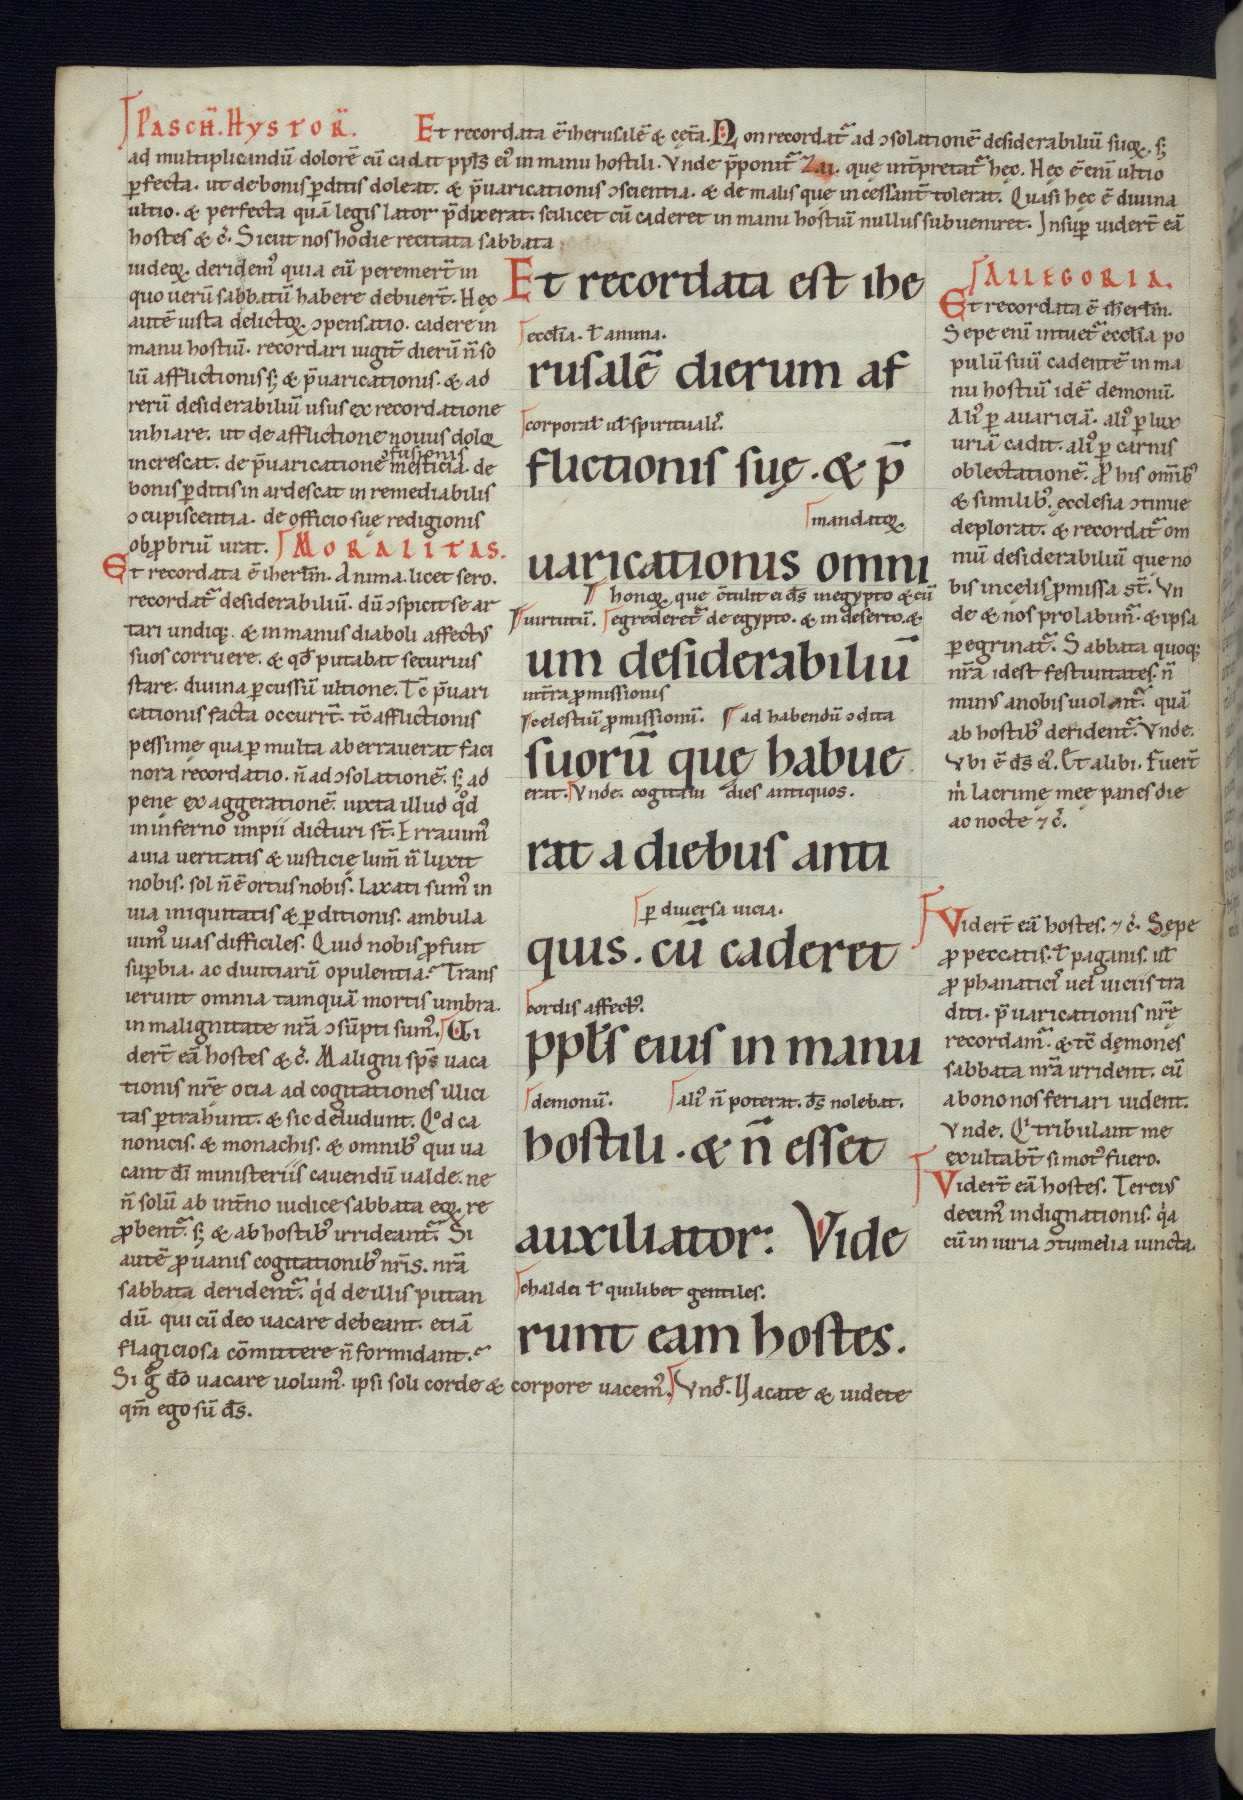 PASCH̄. HYSTOR̄. Et recordata ē iherusalē & cęta. Non recordat̄ ad ɔsolationē desiderabiliū suoꝝ. sꝫ
ad multiplicandū dolorē cū cadat ppl̄s ei᾽ in manu hostili. Vnde p̄ponit̄ Zai. quę int̄pretat̄ hęc. Hęc ē eni ultio
ꝑfecta. ut de bonis ꝑditis doleat. & p̄uaricationis ɔscientia. & de malis que incessant̄ tolerat. Quasi hęc ē diuina
ultio. & perfecta quā legis lator p̄dixerat. scilicet cū caderet in manu hostiū nullus subueniret. Insuꝑ uidert̄ eā
hostes & c̄. Sicut nos hodie recitata sabbata
iudeoꝝ. deridem᾽ quia eū peremert̄ in
quo uerū sabbatū habere debuert̄. Hęc
autē iusta delictoꝝ ɔpensatio. cadere in
manu hostiū. recordari iugit̄ dierū n̄ so
lū afflictionis sꝫ & p̄uaricationis. & ad
rerū desiderabiliū usus ex recordatione
inhiare. ut de afflictione nouus doloꝝ
increscat. de p̄uaricatione ɔfusionis mesticia. de
bonis ꝑditis in ardescat in remediabilis
ɔcupiscentia. de officio suę redigionis
obꝓbriū urat. MORALITAS.
Et recordata ē iherl̄m. Anima. licet sero.
recordat̄ desiderabiliū. dū ɔspicit se ar
tari undiqꝫ. & in manus diaboli affectus
suos corruere. & qđ putabat securius
stare. diuina ꝑcussū ultione. Tc̄ p̄uari
cationis facta occurrt̄. tc̄ afflictionis
pessimę qua ꝑ multa aberrauerat faci
nora recordatio. n̄ ad ɔsolationē. sꝫ ad
penę exaggerationē. iuxta illud qd̄
in inferno impii dicturi st̄. Errauim᾽
a uia ueritatis & iusticię lum̄ n̄ luxit
nobis. sol n̄ ē ortus nobis. laxati sum᾽ in
uia iniquitatis & ꝑditionis. ambula
uim᾽ uias difficiles. Quid nobis ꝓfuit
suꝑbia. ac diuitiarū opulentia. Trans
ierunt omnia tamquā mortis umbra.
in malignitate nr̄a ɔsūpti sum᾽. Vi
dert̄ eā hostes & c̄. Maligni sp̄s uaca
tionis nr̄ę ocia ad cogitationes illici
tas ꝑtrahunt. & sic deludunt. Qd ca
nonicis. & monachis. & omnib᾽ qui ua
cant dī ministeriis cauendū ualde. ne
n̄ solū ab int̄no iudice sabbata eoꝝ re
ꝓbent̄. sꝫ & ab hostib᾽ irrideant̄. Si
autē ꝓ uanis cogitationib᾽ nr̄is. nr̄a
sabbata derident̄. qid de illis putan
dū. qui cū deo uacare debeant. etiā
flagiciosa cōmittere n̄ formidant.
Si g̊ dō uacare uolum᾽. ipsi soli corde & corpore uacem᾽. Vnđ. Vacate & uidete
qm̄ ego sū ds̄.
Et recordata est ihe
eccl̄ia. ł anima.
rusalē dierum af
corporal̄ ul̄ spirituali᾽.
flictionis suę. & p̄
mandatoꝝ.
uaricationis omni
honoꝝ. que ɔtulit ei ds̄ in egypto & cū
uirtutū. egrederet̄ de egypto. & in deserto. &
um desiderabiliū
int̄ra ꝓmissionis
celestiū ꝓmissionū. ad habendū ɔdita
suorū quę habue
erat. Vnde. cogitaui dies antiquos.
rat a diebus anti
ꝑ diuersa uicia.
quis. cū caderet
cordis affect᾽.
ppl̄s eius in manu
demonū. ali᾽ n̄ poterat. ds̄ nolebat.
hostili. & n̄ esset
auxiliator: Vide
chaldei ł quilibet gentiles.
runt eam hostes.
ALLEGORIA.
Et recordata ē ih̄erl̄m.
Sepe eni intuet̄ eccl̄ia po
pulū suū cadentē in ma
nu hostiū idē demonū.
Ali᾽ ꝑ auariciā. ali᾽ ꝑ lux
uriā cadit. ali᾽ ꝑ carnis
oblectationē. ꝓ his om̄ib᾽
& similib᾽. ecclesia ɔtinue
deplorat. & recordat̄ om
niū desiderabiliū que no
bis in cęlis ꝓmissa st̄. Vn
de & nos prolabim̄. & ipsa
ꝑegrinat̄. Sabbata quoqꝫ
nr̄a idest festiuitates. n̄
minus a nobis uiolant̄. quā
ab hostib᾽ derident̄. Vnde.
Vbi ē ds̄ ei᾽. Et alibi. Fuert̄
m̄ lacrimę meę panes die
ac nocte ⁊ c̄.
Vidert̄ eā hostes. ⁊ c̄. Sępe
ꝓ peccatis. ł paganis. ul̄
ꝓ phanatici᾽ uel uiciis tra
diti. p̄uaricationis nr̄ę
recordam̄. & tc̄ dęmones
sabbata nr̄a irrident. cū
a bono nos feriari uident.
Vnde. Q tribulant me
exultabt̄ si mot᾽ fuero.
Vidert̄ eā hostes. Tercius
decim᾽ indignationis. qa
cū iniuria ɔtumelia iuncta.